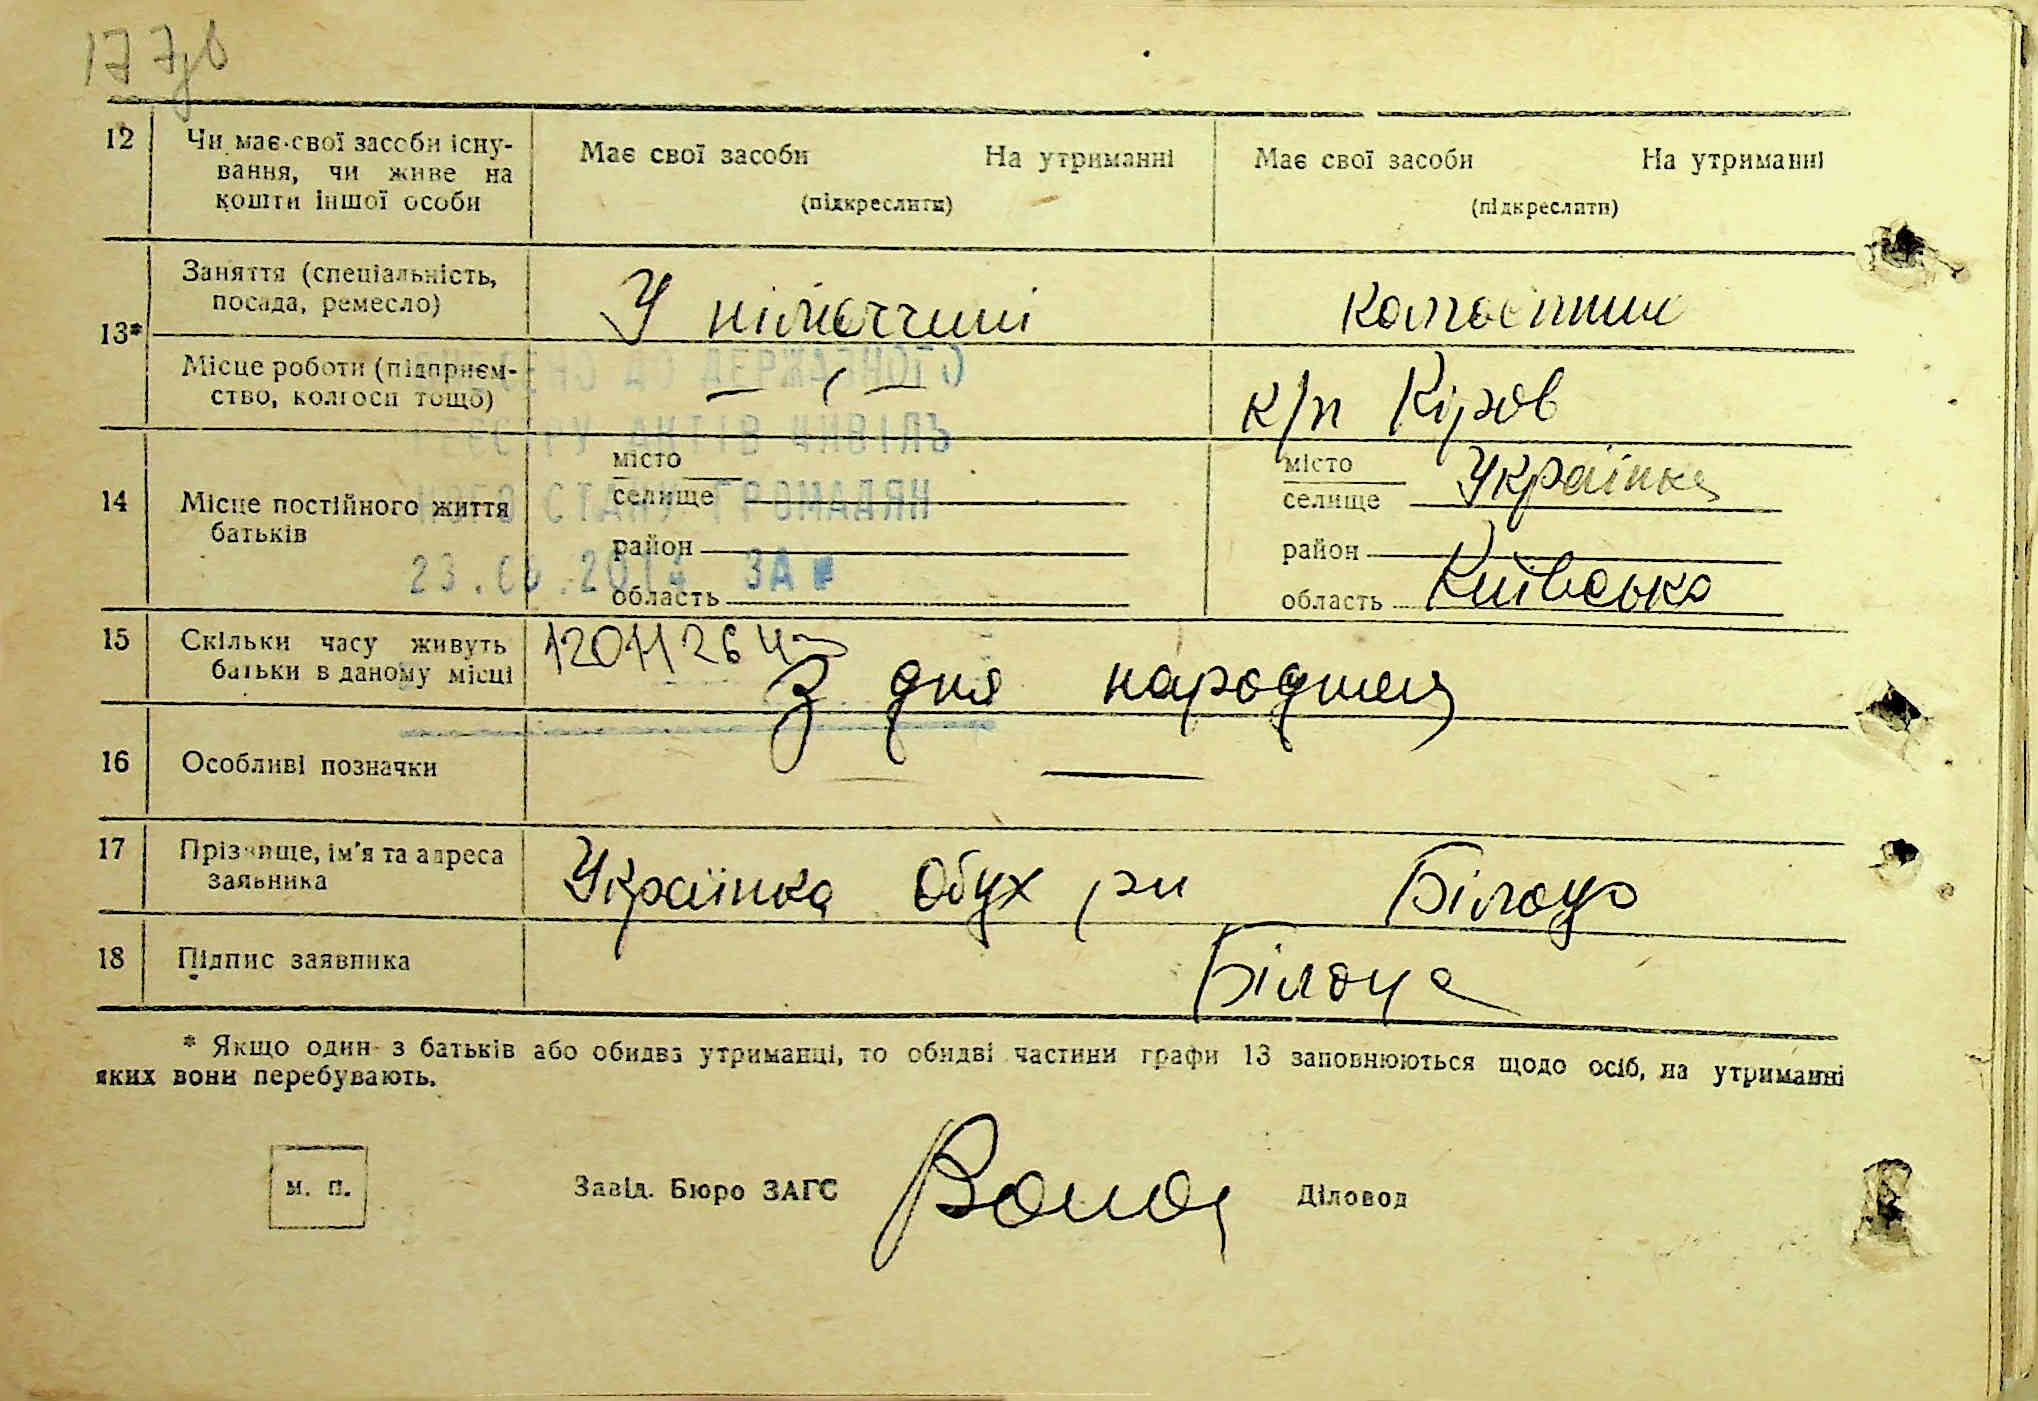 177
12 Чи має свої засоби існу-
вання, чи живе на
кошти іншої особи
Має свої засоби На утриманні
(підкреслити)
Має свої засоби На утриманні
(підкреслити)
13*
Заняття (спеціальність,
посада, ремесло)
У німеччині
колгоспник
Місце роботи (підприєм-
ство, колгосп тощо)
— „ —
к/п Кіров
14 Місце постійного життя
батьків
місто
селище
район
область
місто
селище Українка
район
область Київська
ВНЕСЕНО ДО ДЕРЖАВНОГО
РЕЄСТРУ АКТІВ ЦИВІЛЬ
НОГО СТАНУ ГРОМАДЯН
ЗА №
15 Скільки часу живуть
батьки в даному місці
З дня народження
16 Особливі позначки
—
17 Прізвище, ім'я та адреса
заявника
Українка Обух р-н
18 Підпис заявника
* Якщо один з батьків або обидва утриманці, то обидві частини графи 13 заповнюються щодо осіб, на утриманні
яких вони перебувають.
м. п.
Завід. Бюро ЗАГС
Діловод